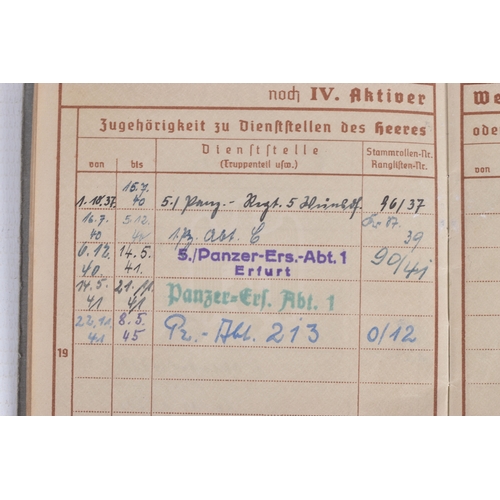 noch IV. Aktiver
We
Zugehörigkeit zu Dienststellen des Heeres
ode
von bis Dienststelle (Truppenteil usw.) Stammrollen-Nr. Ranglisten-Nr.
1.10.37. 15.7. 40 5./ Panz.- Regt. 5 Wünsdf. 96/37
16.7. 40 5.12. 40 Abt. C 39
6.12. 40. 14.5. 41. 5./Panzer-Ers.-Abt.1 Erfurt 90/41
14.5. 41 21.11. 41 Panzer-Ers. Abt. 1
22.11. 41 8.5. 45 Pz.-Abt. 213 0/12
19